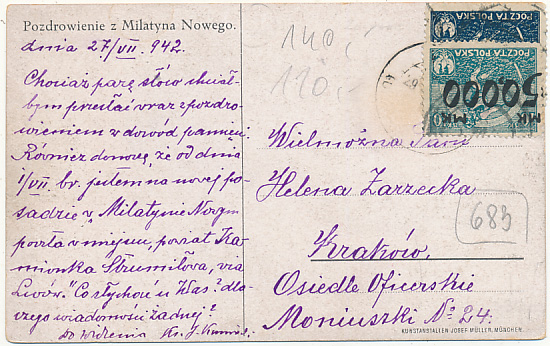 Pozdrowienie z Milatyna Nowego.
dnia 27/VII. 942.
Chociaż parę słów chciał-
bym przesłać wraz z pozdro-
wieniem w dowód pamięci.
Równiez donoszę, że od dnia
1/VII. br. jestem na nowej po-
sadzie w "Milatynie Nowym
poczta w miejscu, powiat Ka-
mionka Strumiłowa, via
Lwów." Co słychać u Was? dla-
czego wiadomości żadnej?
Do widzenia Ks. J.
140,-
120,-
POCZTA POLSKA
POCZTA POLSKA
50.000
MK MK
Wielmożna Pani
Helena Zarzecka
683
Kraków,
Osiedle Oficerskie
Moniuszki No 24.
KUNSTANSTALTEN JOSEF MÜLLER, MÜNCHEN.